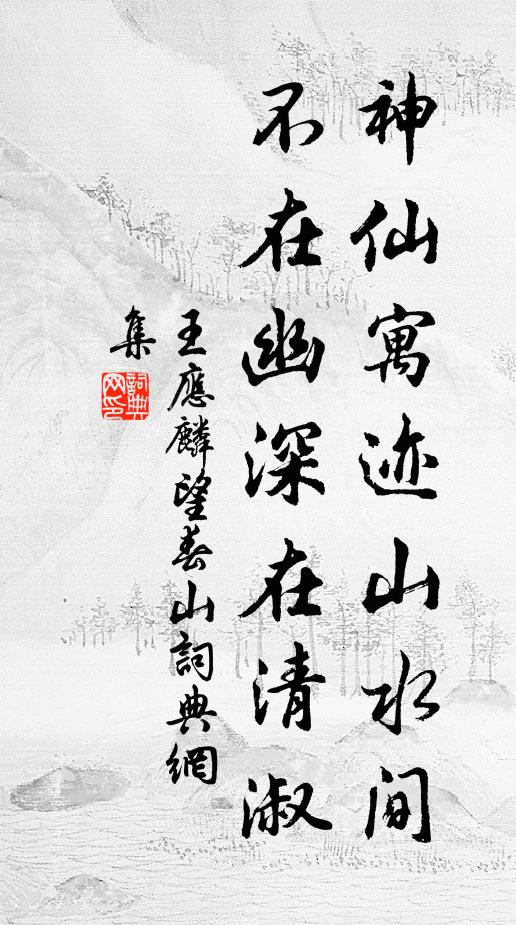 神仙寓迹山水间
不在幽深在清淑
王應麟望春山詞典網
集
詞典
网印